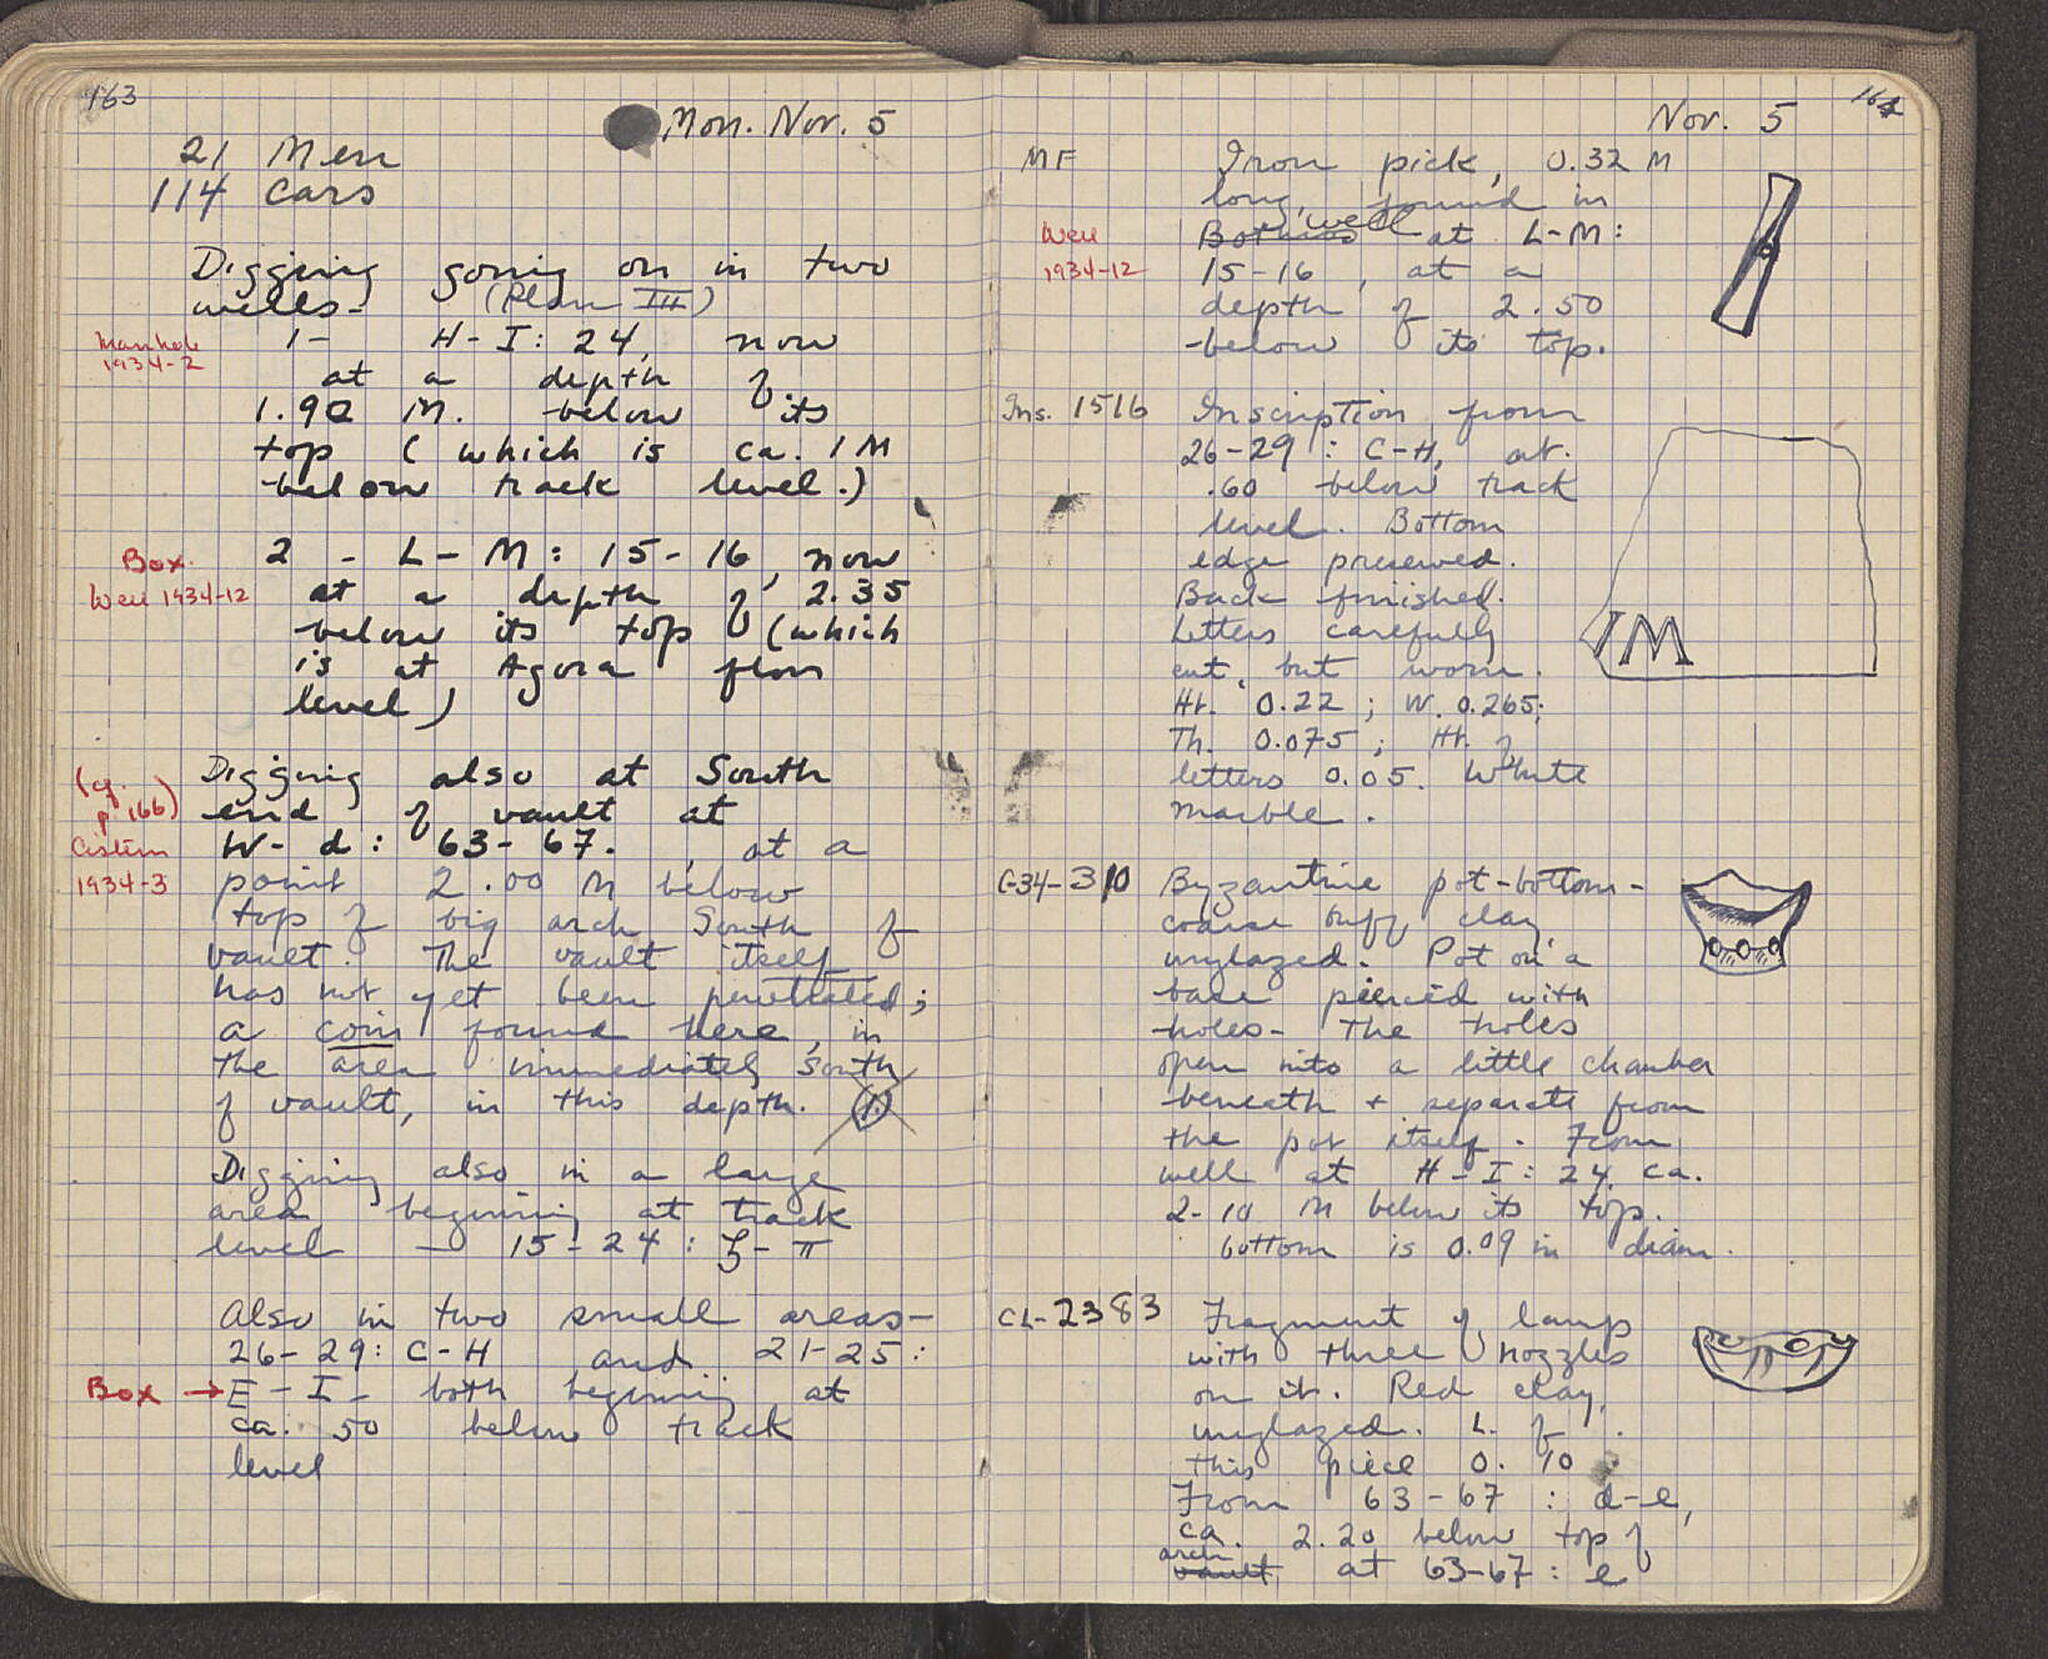 163
Mon. Nov. 5
21 Men
114 cars
Digging going on in two
wells - (Plan III)
Manhole
1934-2
1 - H-I: 24, now
at a depth of
1.90 M. below its
top (which is ca. 1 M
below track level.)
Box.
Well 1934-12
2 - L-M: 15-16, now
at a depth of 2.35
below its top (which
is at Agora floor
level)
(cf.
p 166)
Cistern
1934-3
Digging also at South
end of vault at
W-d: 63-67. , at a
point 2.00 M below
top of big arch South of
vault. The vault itself
has not yet been penetrated;
a coin found here, in
the area immediately South
of vault, in this depth. (1.)
Digging also in a large
area beginning at track
level — 15-24: ζ-π
Also in two small areas—
26-29: C-H and 21-25:
Box → E-I - both beginning at
ca. 50 below track
level
164
Nov. 5
MF Iron pick, 0.32 M
long, found in
Well
1934-12
Bothros well at L-M:
15-16, at a
depth of 2.50
below its top.
Ins. 1516 Inscription from
26-29: C-H, at
.60 below track
level. Bottom
edge preserved.
Back finished.
Letters carefully
cut, but worn.
Ht. 0.22; W. 0.265;
Th. 0.075; Ht. of
letters 0.05. White
marble.
IM
C-34-310 Byzantine pot-bottom-
coarse buff clay,
unglazed. Pot on a
base pierced with
holes- The holes
open into a little chamber
beneath + separate from
the pot itself. From
well at H-I: 24, ca.
2-10 M below its top.
bottom is 0.09 in diam.
CL-2383 Fragment of lamp
with three nozzles
on it. Red clay,
unglazed. L. of
this piece 0.10
From 63-67: d-e,
ca. 2.20 below top of
arch
vault at 63-67: e